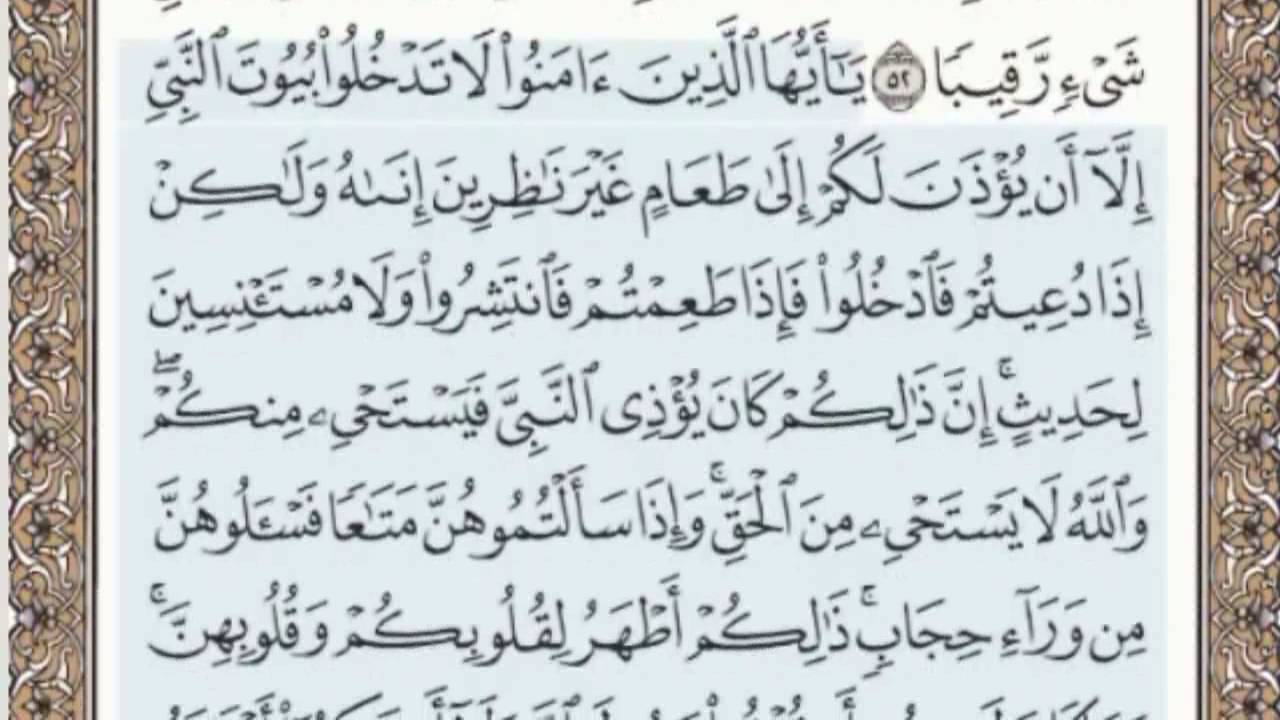 شَىْءٍ رَّقِيبًا ﴿٥٢﴾ يَٰٓأَيُّهَا ٱلَّذِينَ ءَامَنُوا۟ لَا تَدْخُلُوا۟ بُيُوتَ ٱلنَّبِىِّ
إِلَّآ أَن يُؤْذَنَ لَكُمْ إِلَىٰ طَعَامٍ غَيْرَ نَٰظِرِينَ إِنَىٰهُ وَلَٰكِنْ
إِذَا دُعِيتُمْ فَٱدْخُلُوا۟ فَإِذَا طَعِمْتُمْ فَٱنتَشِرُوا۟ وَلَا مُسْتَـْٔنِسِينَ
لِحَدِيثٍ ۚ إِنَّ ذَٰلِكُمْ كَانَ يُؤْذِى ٱلنَّبِىَّ فَيَسْتَحْىِۦ مِنكُمْ ۖ
وَٱللَّهُ لَا يَسْتَحْىِۦ مِنَ ٱلْحَقِّ ۚ وَإِذَا سَأَلْتُمُوهُنَّ مَتَٰعًا فَسْـَٔلُوهُنَّ
مِن وَرَآءِ حِجَابٍ ۚ ذَٰلِكُمْ أَطْهَرُ لِقُلُوبِكُمْ وَقُلُوبِهِنَّ ۚ